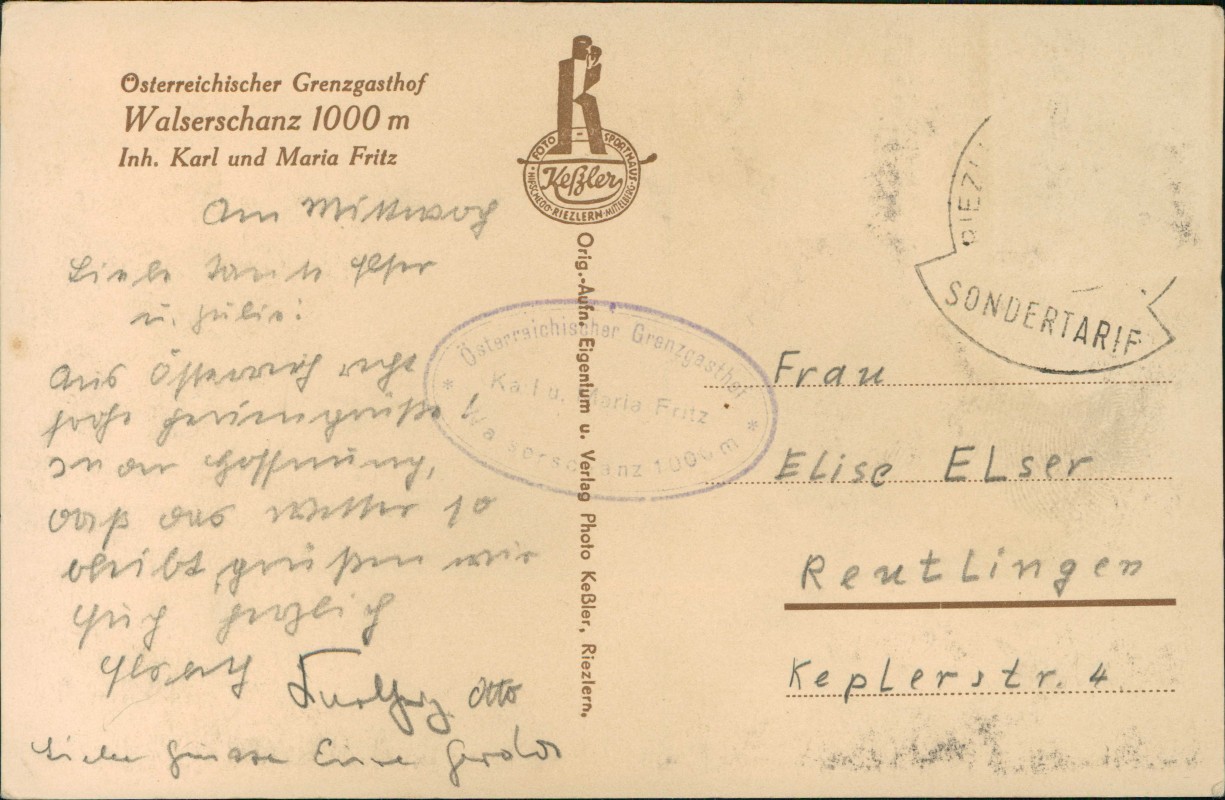 Österreichischer Grenzgasthof
Walserschanz 1000 m
Inh. Karl und Maria Fritz
K
FOTO - SPORTHAUS
Keßler
HIRSCHEGG · RIEZLERN · MITTELBERG
Am Mittwoch
Liebe Tante Elser
u. Julie!
Aus Österreich recht
frohe Feriengrüße!
In der Hoffnung,
daß das Wetter so
bleibt, grüßen wir
Euch herzlich
Otto
Liebe Grüsse Eure
Orig.-Aufn. Eigentum u. Verlag Photo Keßler, Riezlern.
Österreichischer Grenzgasthof
Karl u. Maria Fritz
* Walserschanz 1000 m *
RIEZL
SONDERTARIF
Frau
Elise Elser
Reutlingen
Keplerstr. 4